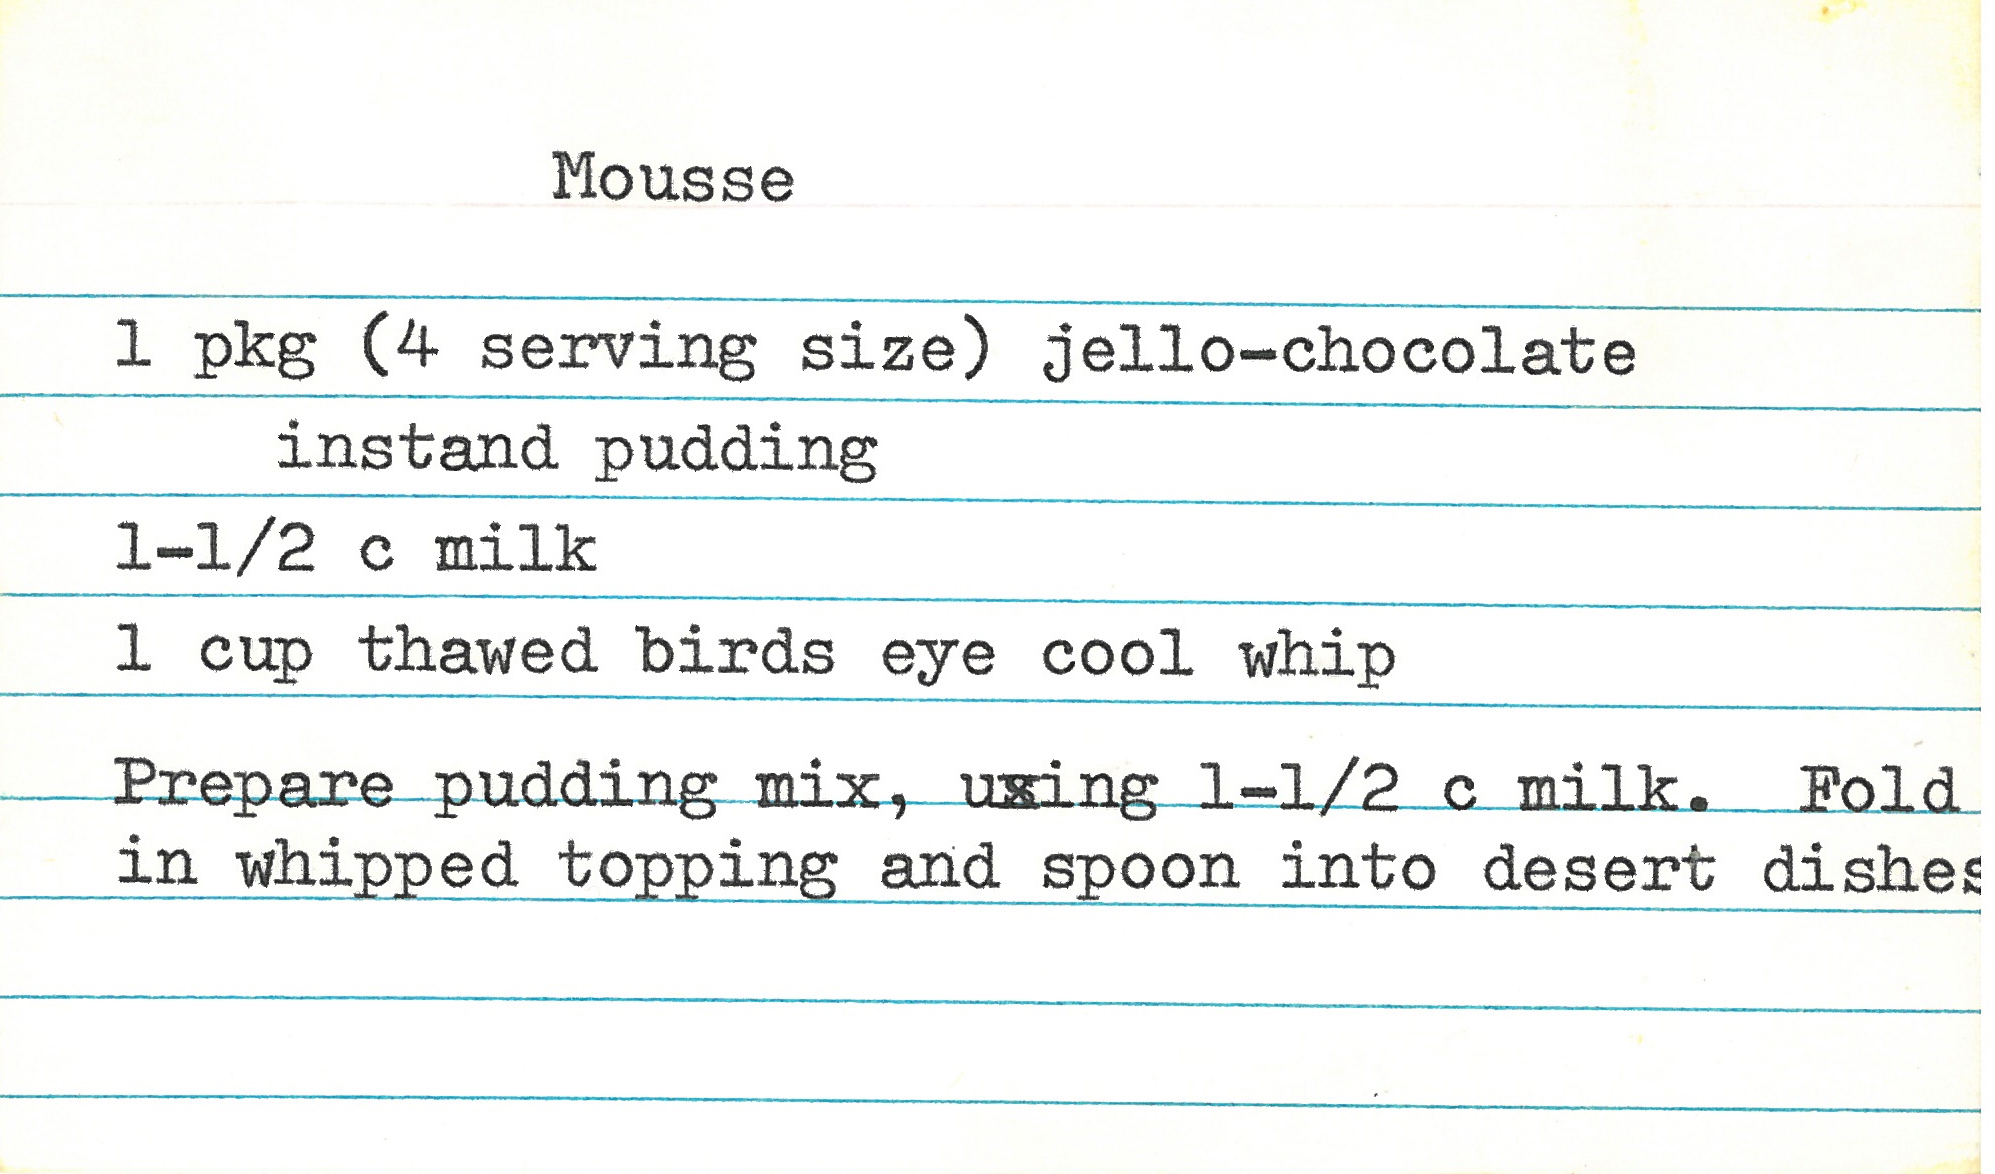 Mousse
1 pkg (4 serving size) jello-chocolate
instand pudding
1-1/2 c milk
1 cup thawed birds eye cool whip
Prepare pudding mix, using 1-1/2 c milk. Fold
in whipped topping and spoon into desert dishes